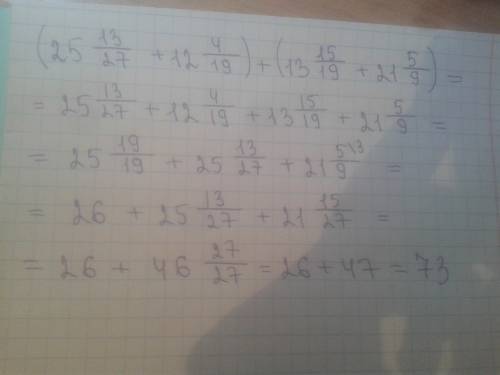 (25 13/27 + 12 4/19) + (13 15/19 + 21 5/9) =
= 25 13/27 + 12 4/19 + 13 15/19 + 21 5/9 =
= 25 19/19 + 25 13/27 + 21 5\3/9 =
= 26 + 25 13/27 + 21 15/27 =
= 26 + 46 27/27 = 26 + 47 = 73